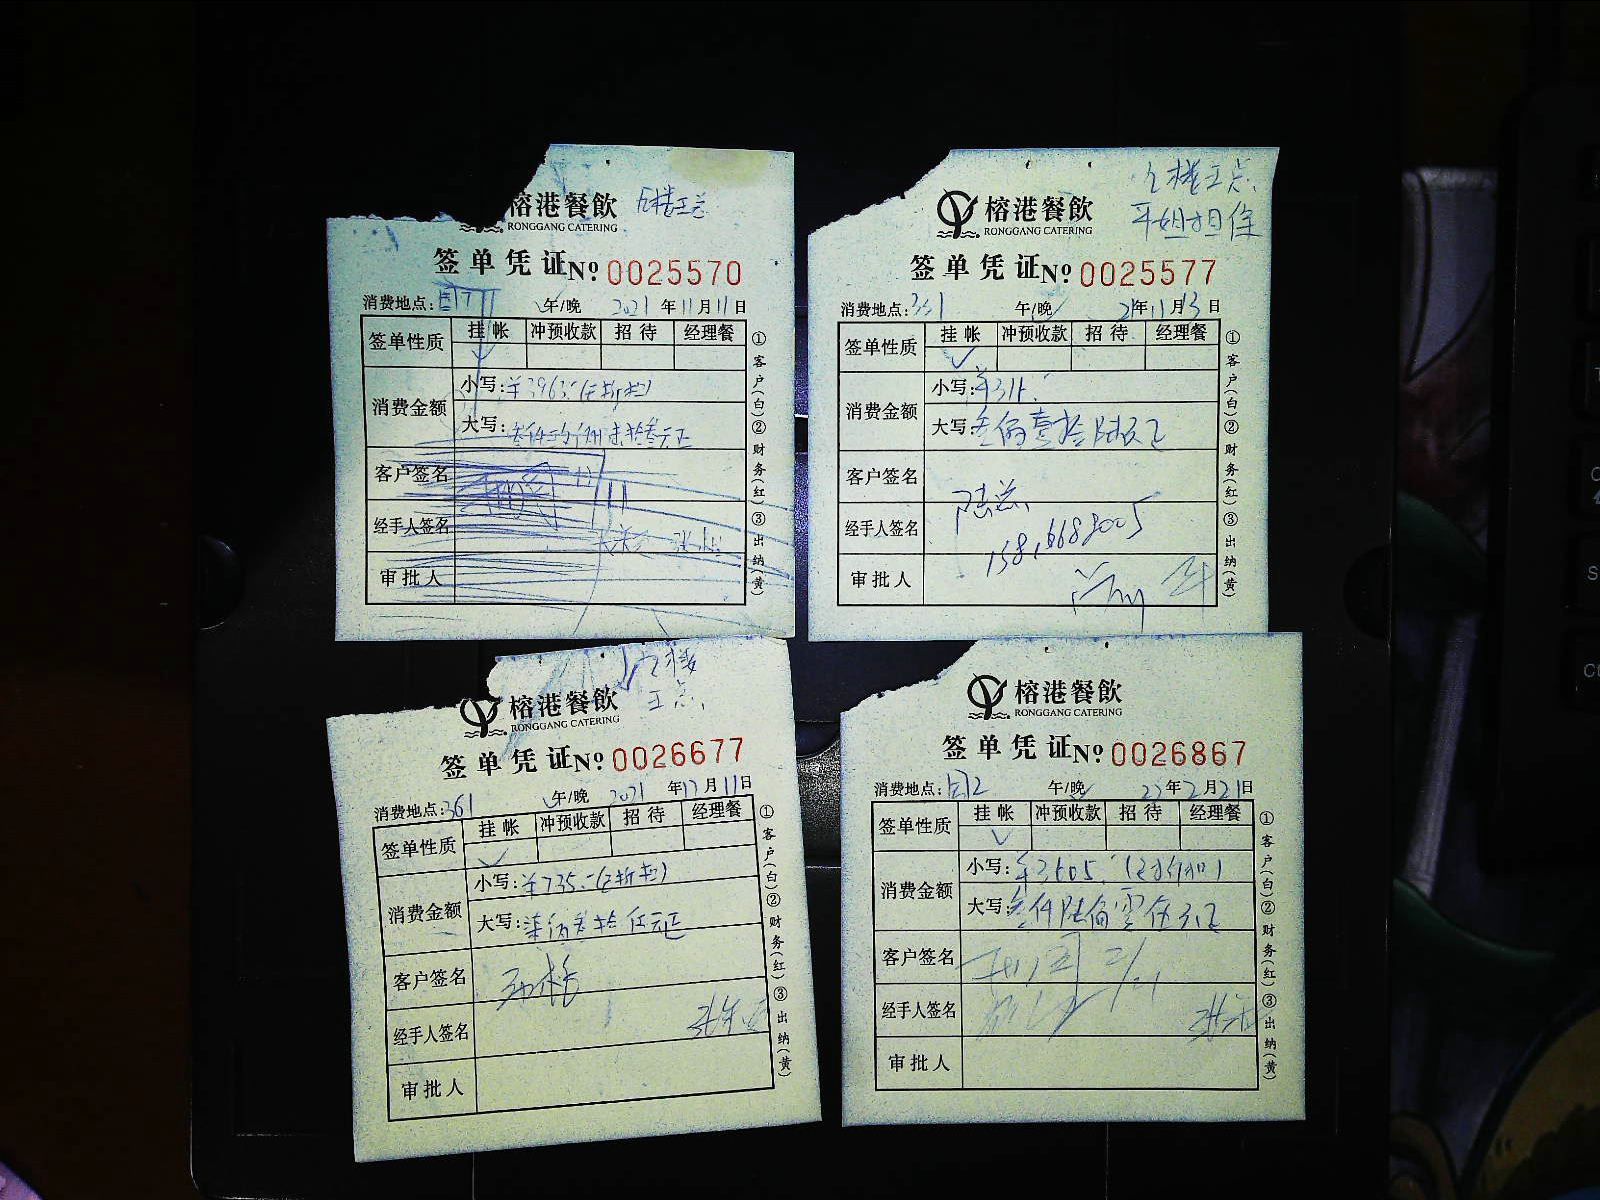 榕港餐飲
RONGGANG CATERING
签单凭证 No 0025570
消费地点: 午/晚 2021年11月11日
签单性质 挂帐 冲预收款 招待 经理餐
消费金额 小写:¥3963.-
大写:
客户签名
经手人签名
审批人
①客户(白)②财务(红)③出纳(黄)
王总
平姐担保
榕港餐飲
RONGGANG CATERING
签单凭证 No 0025577
消费地点:331 午/晚 21年11月13日
签单性质 挂帐 冲预收款 招待 经理餐
消费金额 小写:¥316.-
大写:叁佰壹拾陆元正
客户签名
经手人签名
审批人
①客户(白)②财务(红)③出纳(黄)
王总
榕港餐飲
RONGGANG CATERING
签单凭证 No 0026677
消费地点:361 午/晚 2021年12月11日
签单性质 挂帐 冲预收款 招待 经理餐
消费金额 小写:¥735.-
大写:柒佰叁拾伍元正
客户签名
经手人签名
审批人
①客户(白)②财务(红)③出纳(黄)
榕港餐飲
RONGGANG CATERING
签单凭证 No 0026867
消费地点: 午/晚 22年2月21日
签单性质 挂帐 冲预收款 招待 经理餐
消费金额 小写:¥3605.-
大写:叁仟陆佰零伍元正
客户签名
经手人签名
审批人
①客户(白)②财务(红)③出纳(黄)